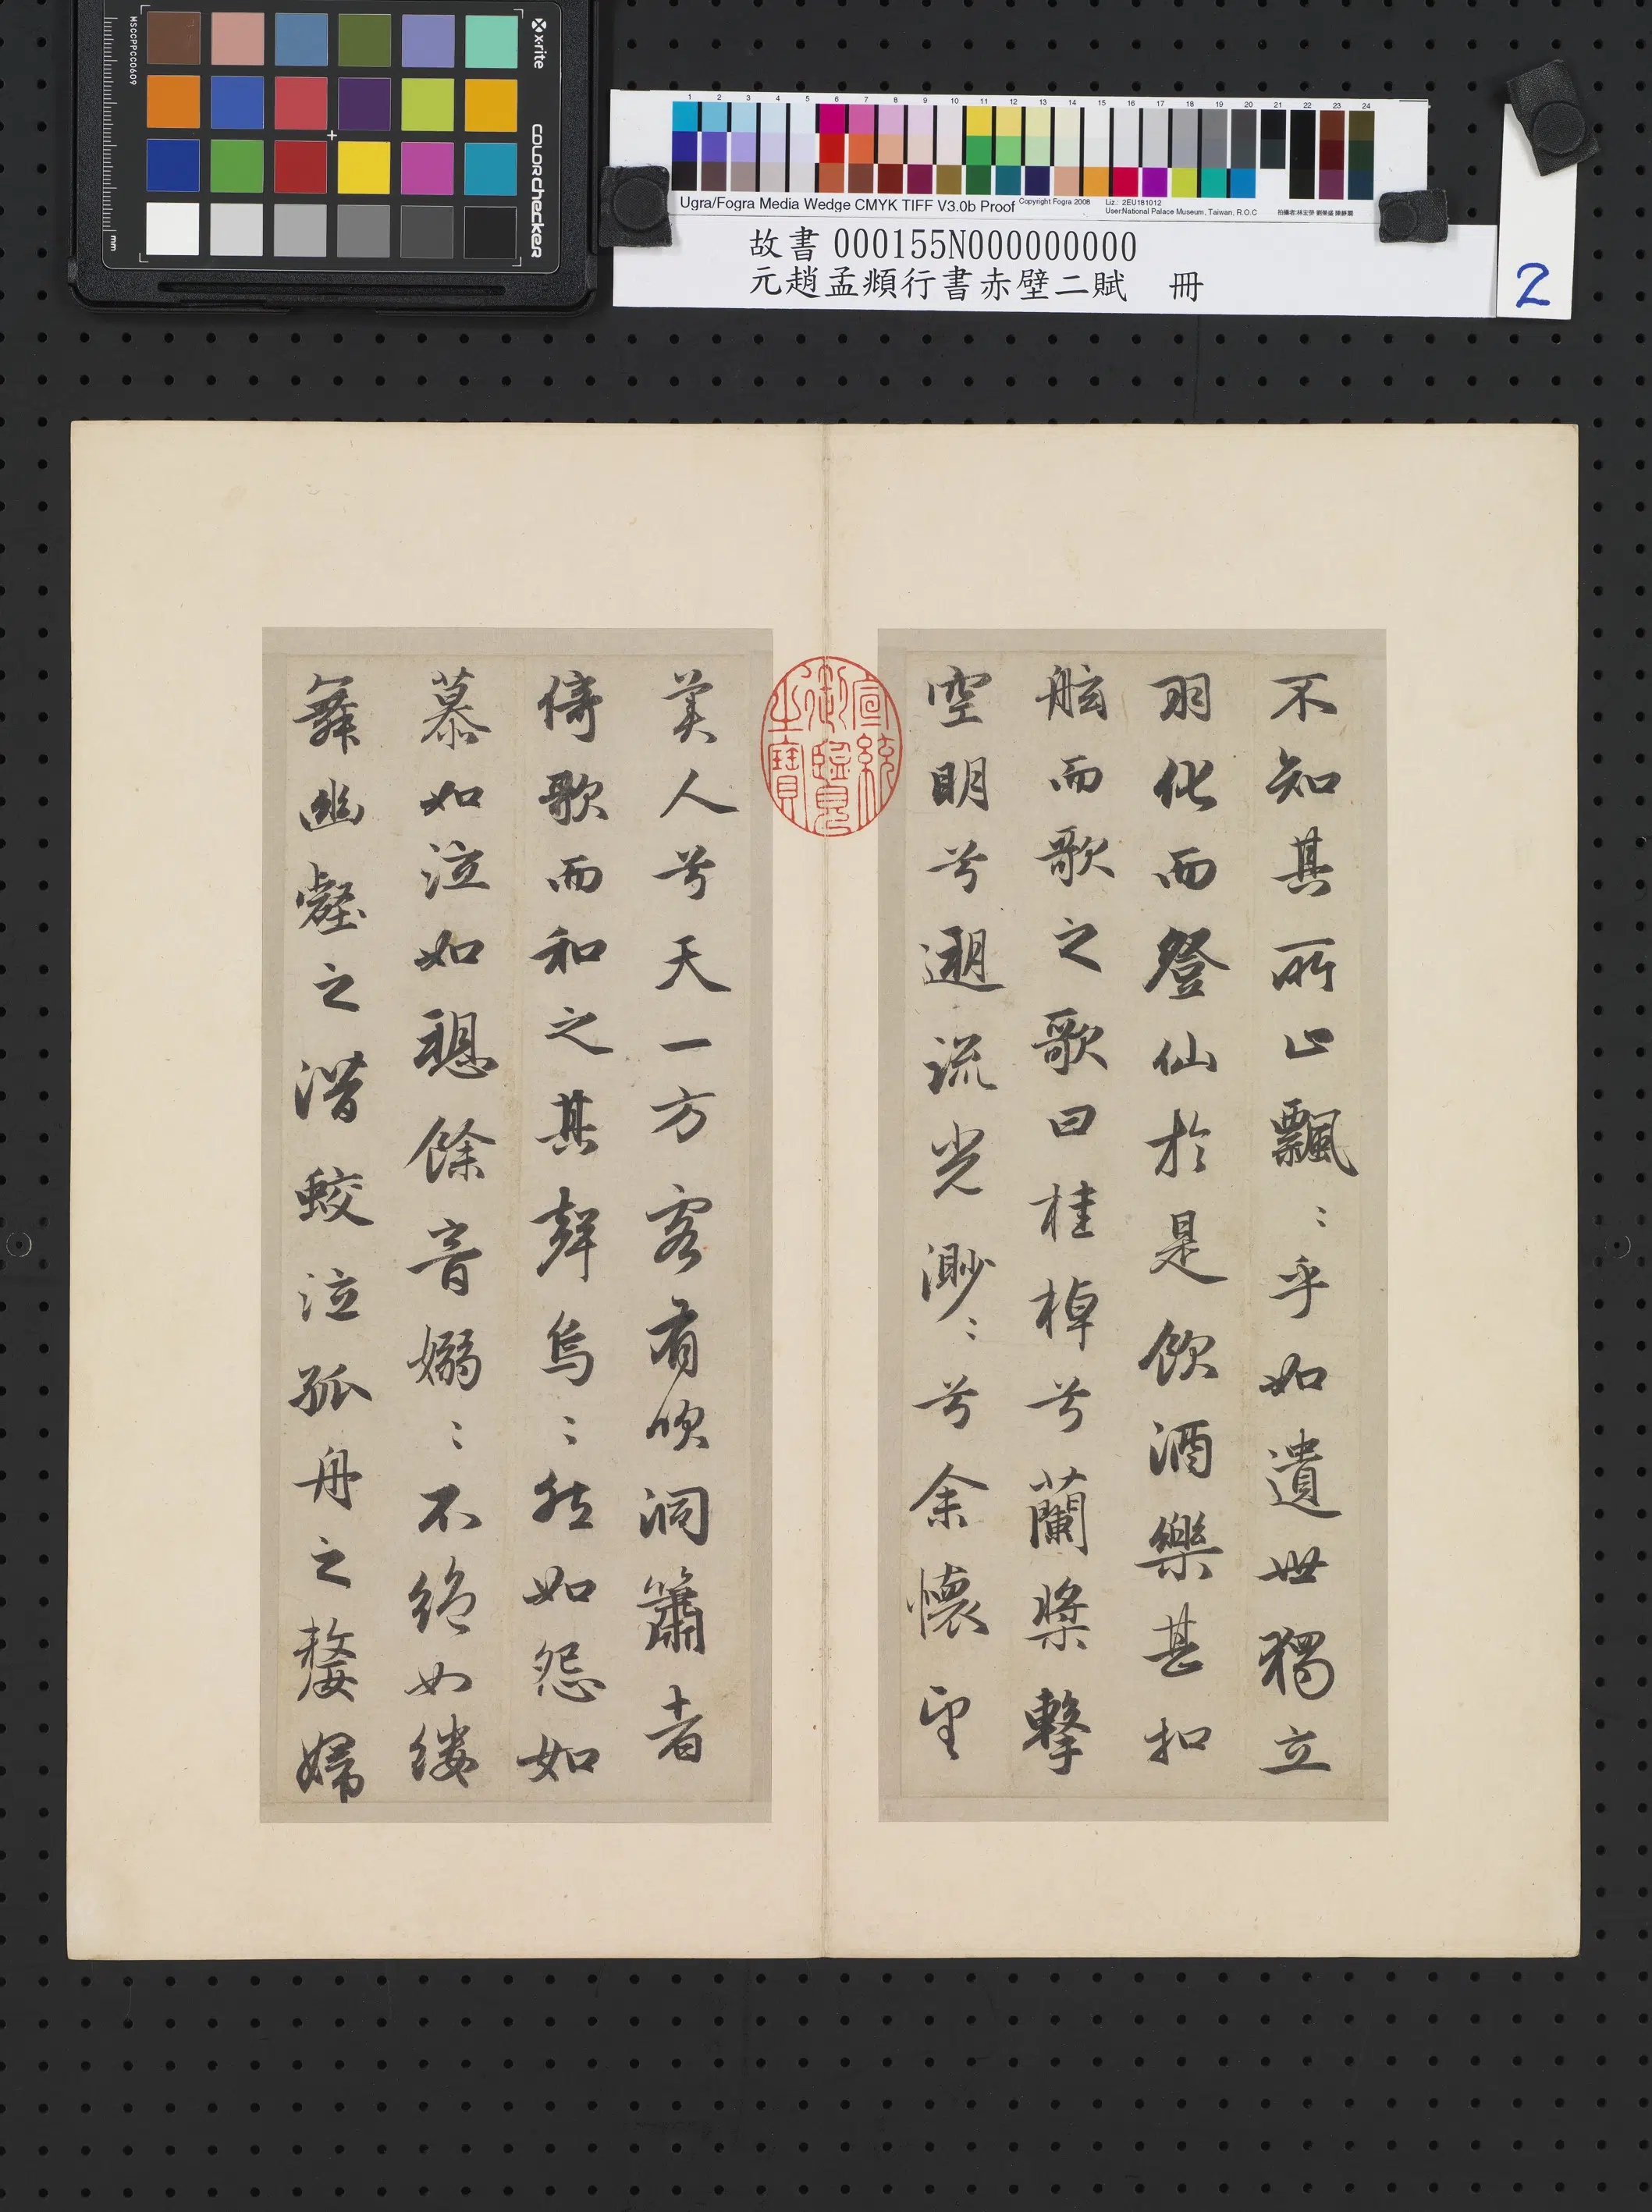 MSCCPPCC0609
x-rite
colorchecker
mm
1 2 3 4 5 6 7 8 9 10 11 12 13 14 15 16 17 18 19 20 21 22 23 24
Ugra/Fogra Media Wedge CMYK TIFF V3.0b Proof
Copyright Fogra 2008
Liz.: 2EU181012
User:National Palace Museum, Taiwan, R.O.C
故書 000155N000000000
元趙孟頫行書赤壁二賦 冊
2
不知其所止飄〻乎如遺世獨立
羽化而登仙於是飲酒樂甚扣
舷而歌之歌曰桂棹兮蘭槳擊
空明兮遡流光渺〻兮余懷望
宣統御覽之寶
美人兮天一方客有吹洞簫者
倚歌而和之其聲烏〻然如怨如
慕如泣如愬餘音嫋〻不絕如縷
舞幽壑之潛蛟泣孤舟之嫠婦